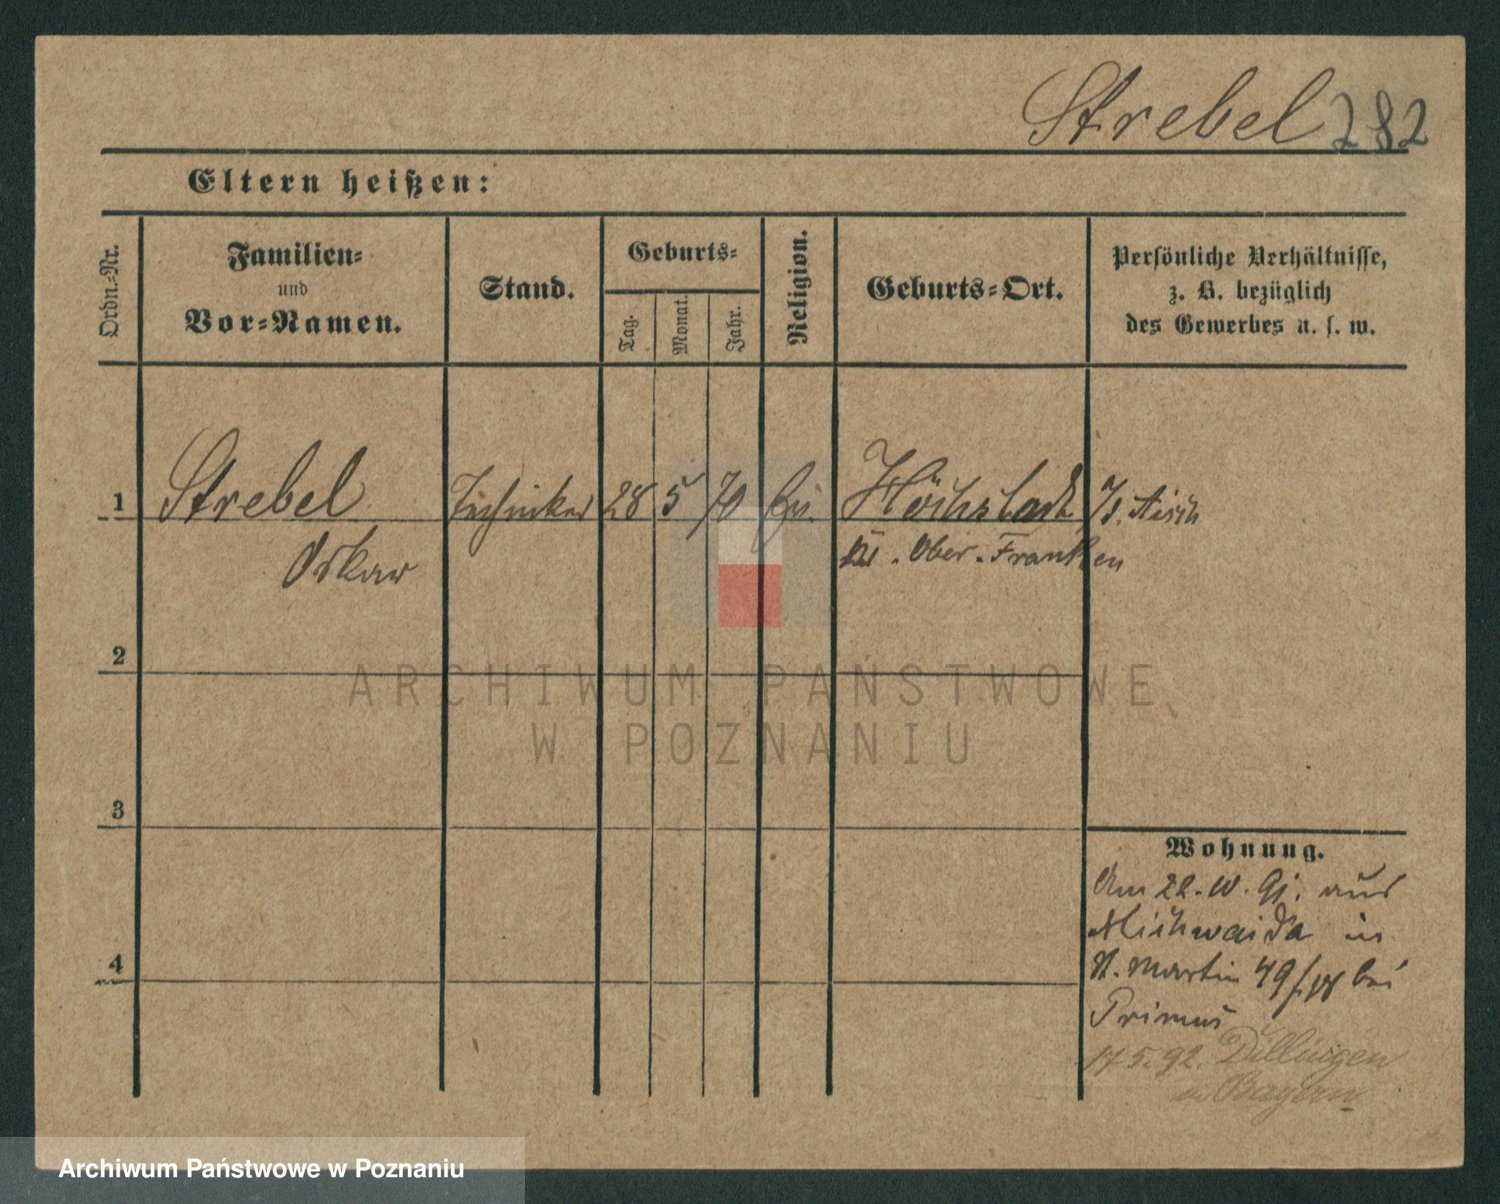 Strebel 282
Eltern heißen:
Ordn.-Nr.
Familien-
und
Vor-Namen.
Stand.
Geburts-
Tag.
Monat.
Jahr.
Religion.
Geburts-Ort.
Persönliche Verhältnisse,
z. B. bezüglich
des Gewerbes u. s. w.
1 Strebel Techniker 28 5 70 Höchstadt Aisch
Oskar Ober-Franken
2
ARCHIWUM PAŃSTWOWE
W POZNANIU
3
Wohnung.
Am 22. 10. 91. aus
Mittwaida in
St. Martin 49 bei
4
Primus
17.5.92. Dillingen
in Bayern
Archiwum Państwowe w Poznaniu